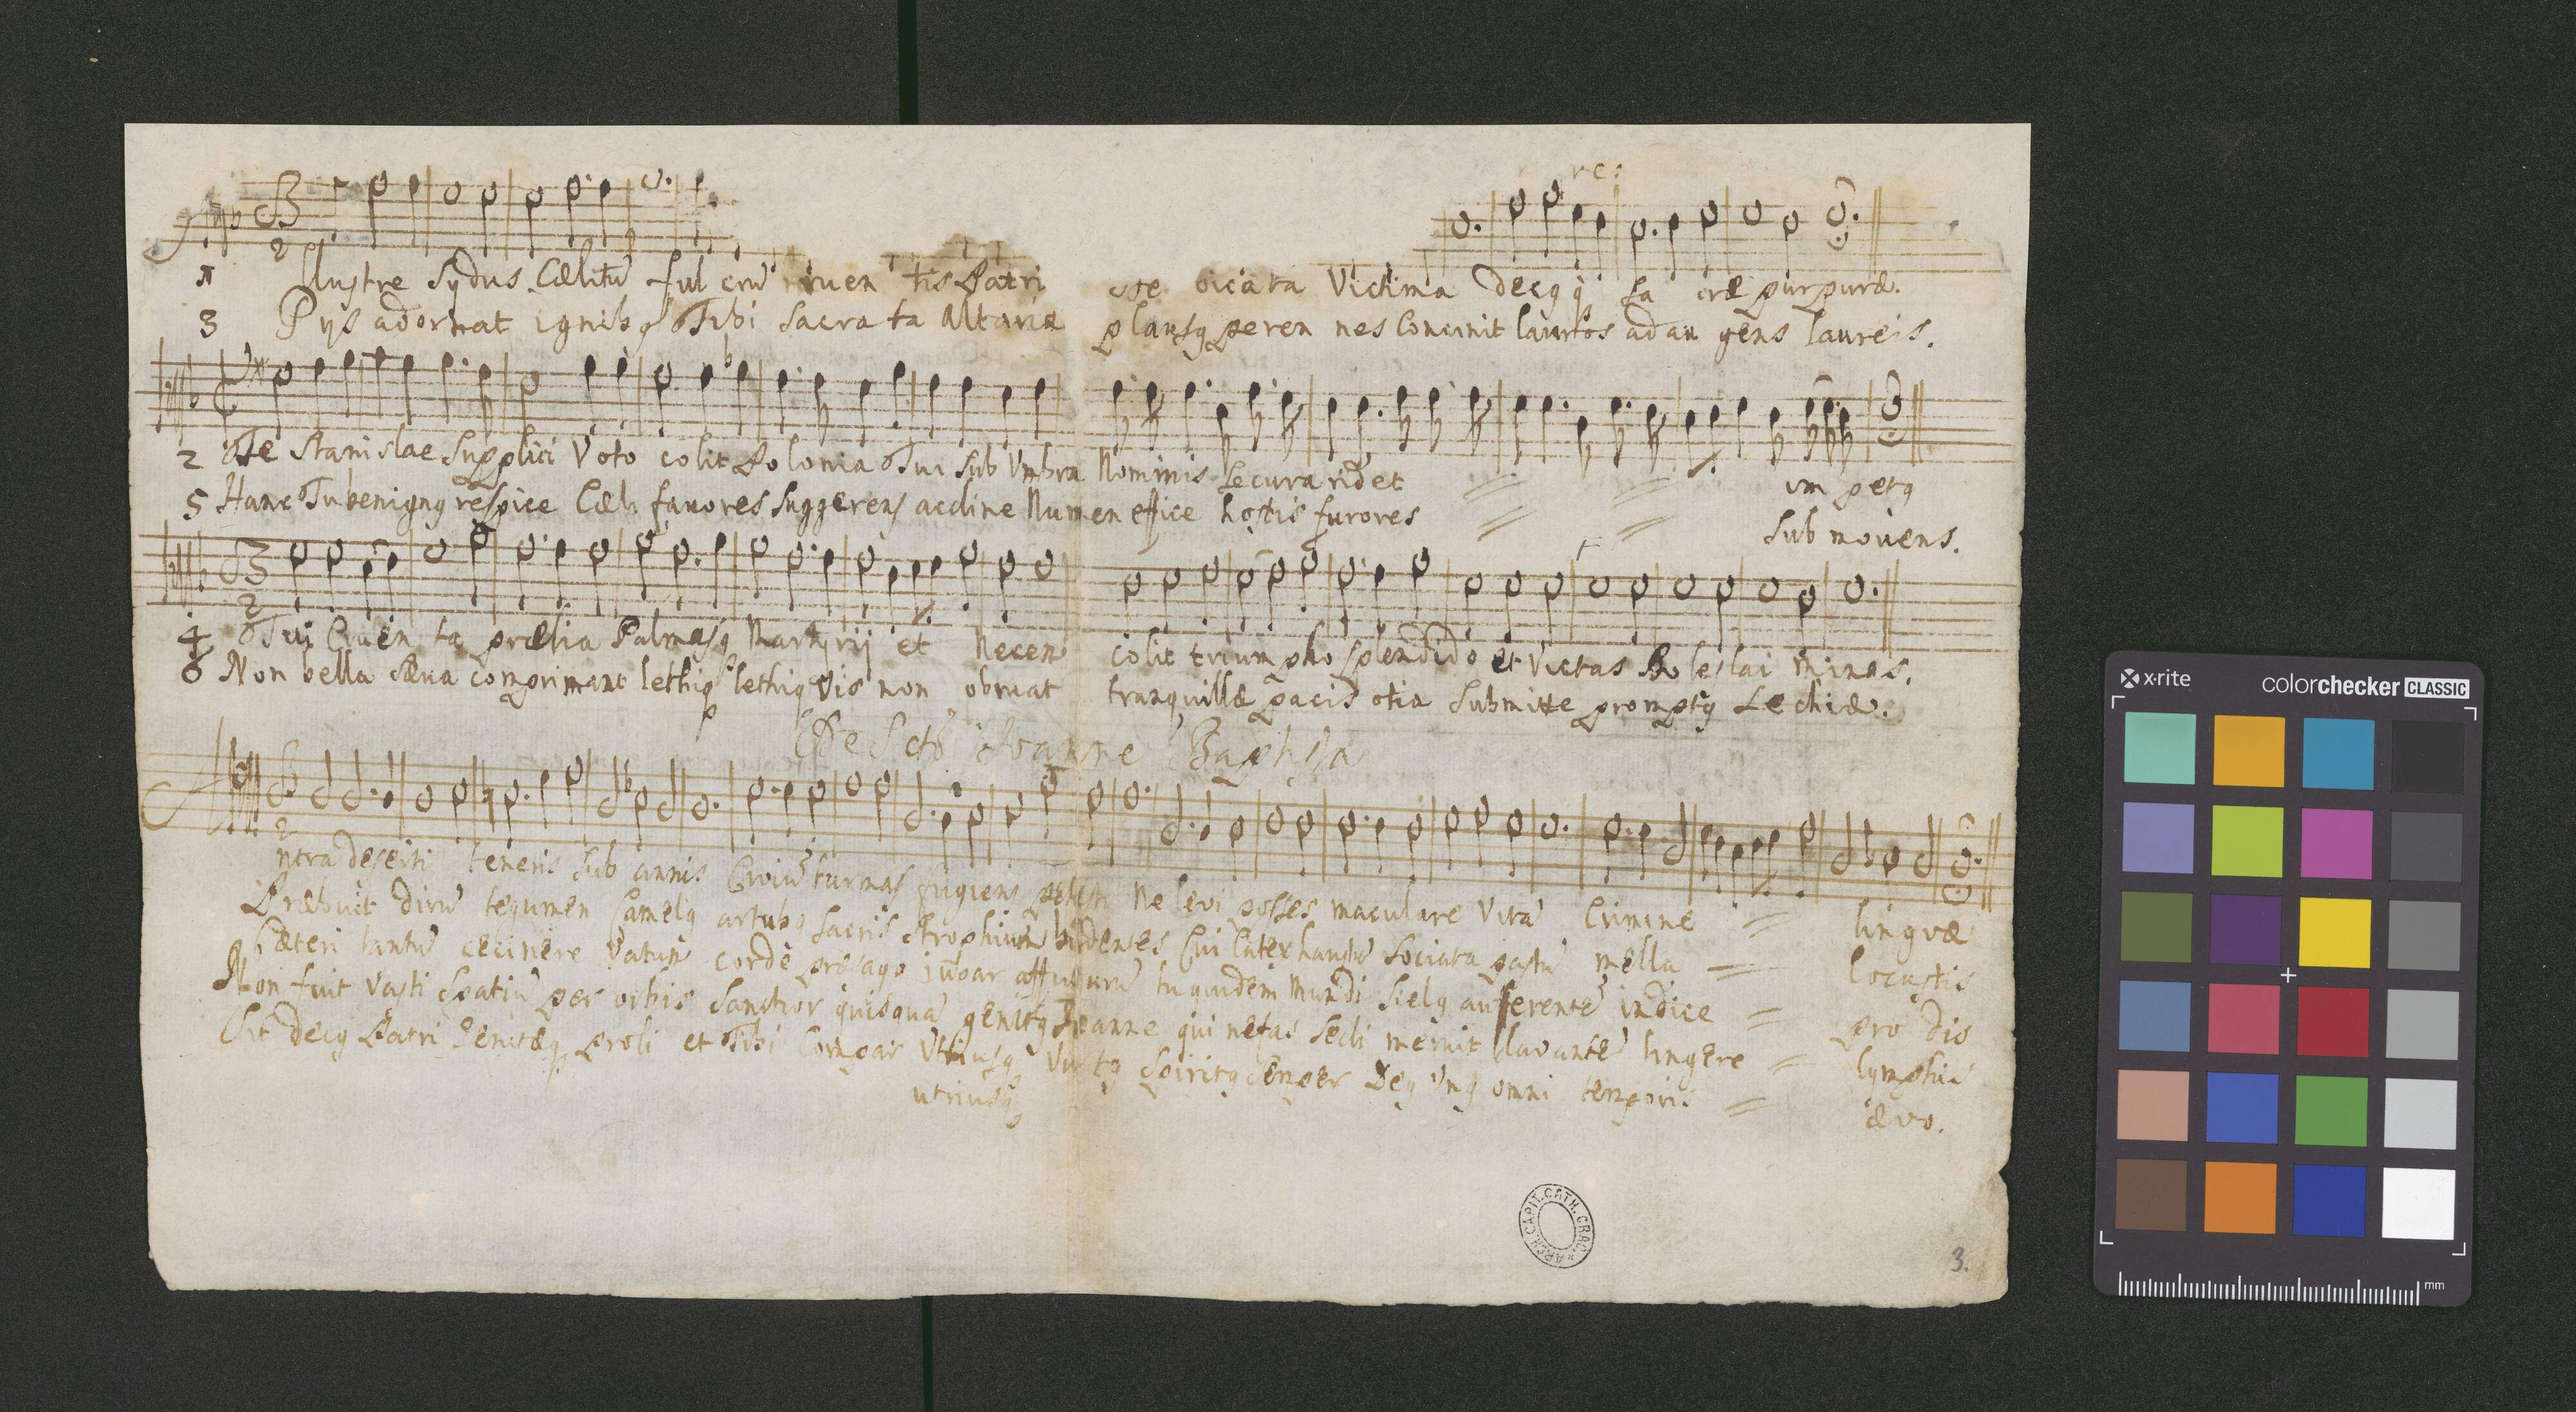 res
llustre Sydus Cælitũ ful crũ ruen tis Patri oicata Victima decq q́ sa cræ purpuræ.
3 Pijs adornat ignibq Tibi Sacra ta Altaria plausq peren nes Concinit lauros adau gens laureis.
2 Te Stanislae Supplici Voto colit Polonia Tui Sub Vmbra Nominis Secura ridet
im petq
5 Hanc Tu benignq respice Cæli fauores Suggerens acline Numen effice hostis furores
Sub mouens.
4 Tui Cruen ta prælia Palmasq Martyrij et Necem colit triumpho Splendido et Victas Boleslai minas.
6 Non bella Sæua comprimant lethiq lethiq Vis non obruat tranquillæ pacis otia Submitte promptq Lechiæ.
De Scto Joanne Baptista
ntra deserti teneris Sub annis Ciuiũ turmas fugiens petisti Ne levi posses maculare Vitã Crimine = linguæ
Præbuit dirũ tegumen Camelq artubq Sacris Strophium bidentes Cui latex haustũ Sociata pastũ mella = locustis
Cæteri tantũ cecinere Vatum corde præsago iubar affuturũ tu quidem Mundi Scelq auferentẽ indice = pro dis
Non fuit Vasti Spatiũ per orbis Sanctior quisquã genitq Joanne qui nefas Secli meruit lauantẽ tingere = lymphis
Sit decq Patri Genitæq proli et Tibi Compar Vtriusq Virtq Spiritq Semper Deq Vnq omni temporis = ævo.
utriusq
ARCH. CAPIT. CATH. CRAC.
3.
x-rite
colorchecker CLASSIC
mm